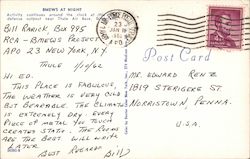 BMEWS AT NIGHT
Activity continues around the clock at the
defense outpost near Thule Air Base,
BILL RARICK BOX 995
RCA - BMEWS PROJECT
APO 23 NEW YORK N.Y.
THULE 1/12/62
HI ED.
THIS PLACE IS FABULOUS
THE WEATHER IS VERY COLD
BUT BEARABLE. THE CLIMATE
IS EXTREMELY DRY. EVERY
PIECE OF METAL YOU TOUCH
CREATES STATIC. THE FOOD
ARE THE BEST. WILL WRITE
LATER
BEST REGARDS
Bill
23
JAN
1962
APO
Post Card
MR. EDWARD RENTZ
1819 STERIGERE ST
NORRISTOWN, PENNA.
U.S.A.